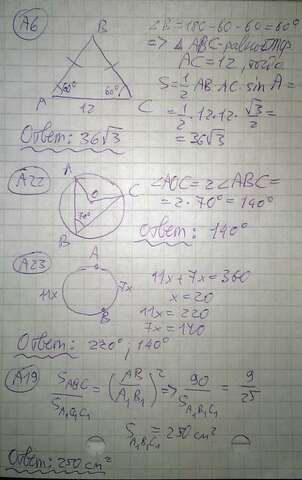 A6
B
60°
60°
A
12
C
∠B=180-60-60=60°
AC=12, тогда
S=1/2 AB·AC·sin A=
=1/2·12·12·√3/2=
=36√3
Ответ: 36√3
A22
A
O
C
70°
B
∠AOC=2∠ABC=
=2·70°=140°
Ответ: 140°
A23
A
11x
7x
B
11x+7x=360
x=20
11x=220
7x=140
Ответ: 220°; 140°
A19
S_ABC/S_A₁B₁C₁=(AB/A₁B₁)²=>90/S_A₁B₁C₁=9/25
S_A₁B₁C₁=250 см²
Ответ: 250 см²